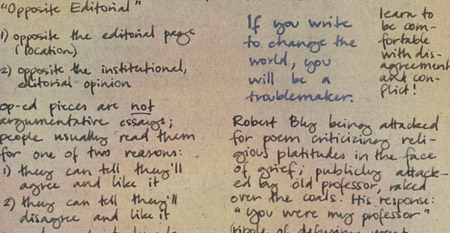 "Opposite Editorial"
1) opposite the editorial page
(location)
2) opposite the institutional,
editorial opinion
op-ed pieces are not
argumentative essays;
people usually read them
for one of two reasons:
1) they can tell they'll
agree and like it
2) they can tell they'll
disagree and like it
If you write
to change the
world, you
will be a
troublemaker.
learn to
be com-
fortable
with dis-
agreement
and con-
flict!
Robert Bly being attacked
for poem criticizing reli-
gious platitudes in the face
of grief; publicly attack-
ed by old professor, raked
over the coals. His response:
"you were my professor"
ripple of